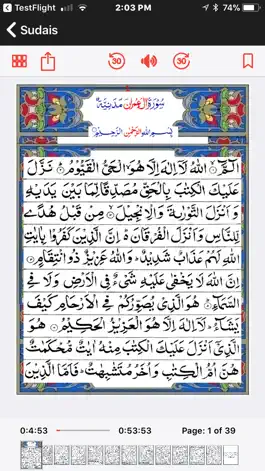 TestFlight 2:03 PM 74%
Sudais
30 30
سُوْرَةُ اٰلِ عِمْرٰنَ مَدَنِيَّةٌ
بِسْمِ اللّٰهِ الرَّحْمٰنِ الرَّحِيْمِ
الٓمّٓ اللّٰهُ لَاۤ اِلٰهَ اِلَّا هُوَ الْحَىُّ الْقَيُّوْمُ نَزَّلَ
عَلَيْكَ الْكِتٰبَ بِالْحَقِّ مُصَدِّقًا لِّمَا بَيْنَ يَدَيْهِ
وَاَنْزَلَ التَّوْرٰىةَ وَالْاِنْجِيْلَ مِنْ قَبْلُ هُدًى
لِّلنَّاسِ وَاَنْزَلَ الْفُرْقَانَ اِنَّ الَّذِيْنَ كَفَرُوْا بِاٰيٰتِ
اللّٰهِ لَهُمْ عَذَابٌ شَدِيْدٌ وَاللّٰهُ عَزِيْزٌ ذُو انْتِقَامٍ
اِنَّ اللّٰهَ لَا يَخْفٰى عَلَيْهِ شَىْءٌ فِى الْاَرْضِ وَلَا فِى
السَّمَآءِ هُوَ الَّذِىْ يُصَوِّرُكُمْ فِى الْاَرْحَامِ كَيْفَ
يَشَآءُ لَاۤ اِلٰهَ اِلَّا هُوَ الْعَزِيْزُ الْحَكِيْمُ هُوَ
الَّذِىْۤ اَنْزَلَ عَلَيْكَ الْكِتٰبَ مِنْهُ اٰيٰتٌ مُّحْكَمٰتٌ
هُنَّ اُمُّ الْكِتٰبِ وَاُخَرُ مُتَشٰبِهٰتٌ فَاَمَّا الَّذِيْنَ
0:4:53 0:53:53 Page: 1 of 39